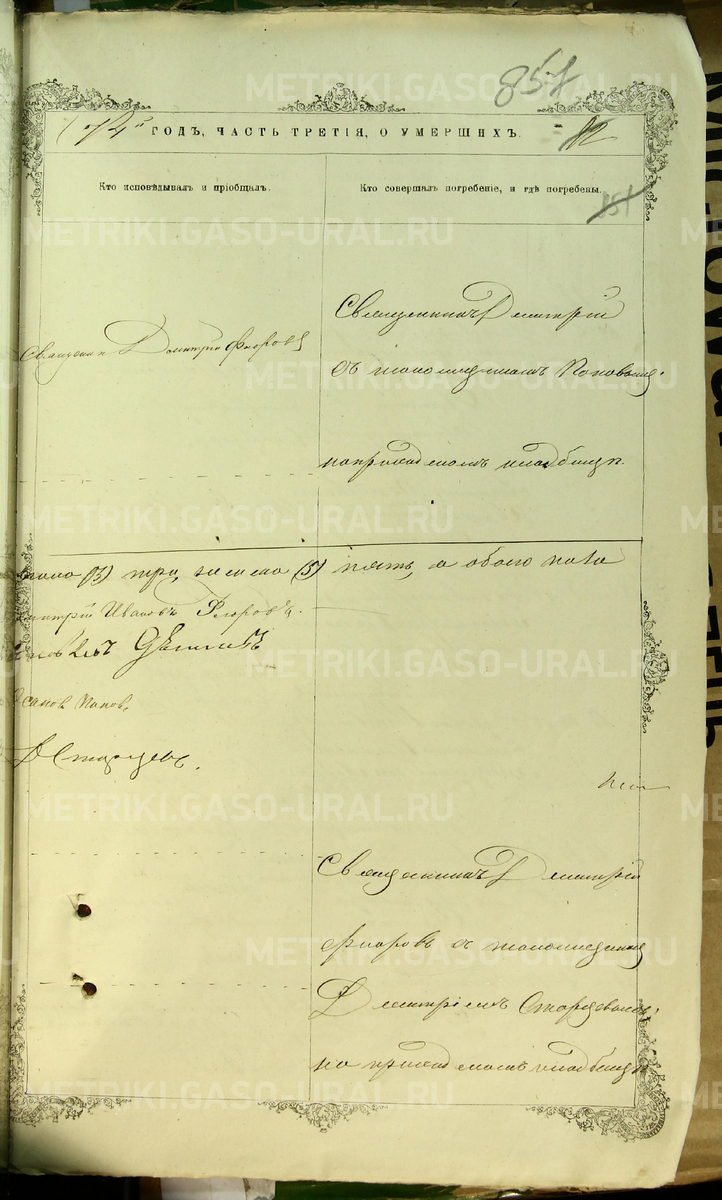 851
1872 ГОДЪ, ЧАСТЬ ТРЕТІЯ, О УМЕРШИХЪ.
Кто исповѣдывалъ и пріобщалъ.
Кто совершалъ погребеніе, и гдѣ погребены.
851
Священникъ Димитрій
Священникъ Димитрій Флоровъ
съ псаломщикомъ Поповымъ
на приходскомъ кладбищѣ
пола (3) три, женска (5) пять, а обоего пола
Димитрій Ивановъ Флоровъ.
Попов.
Д Старцевъ.
Священникъ Димитрій
Флоровъ съ псаломщикомъ
Димитріемъ Старцевымъ
на приходскомъ кладбищѣ
METRIKI.GASO-URAL.RU